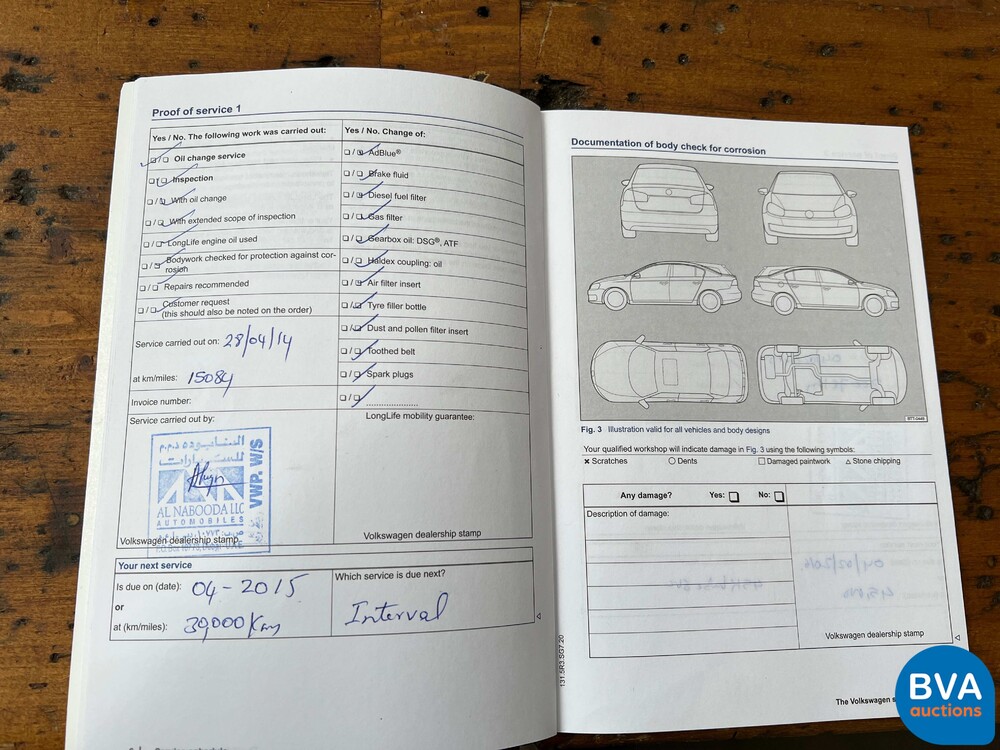 Proof of service 1
Yes / No. The following work was carried out:
Yes / No. Change of:
Oil change service
Inspection
With oil change
With extended scope of inspection
LongLife engine oil used
Bodywork checked for protection against cor-
rosion
Repairs recommended
Customer request
(this should also be noted on the order)
Service carried out on: 28/04/14
at km/miles: 15084
Invoice number:
AdBlue®
Brake fluid
Diesel fuel filter
Gas filter
Gearbox oil: DSG®, ATF
Haldex coupling: oil
Air filter insert
Tyre filler bottle
Dust and pollen filter insert
Toothed belt
Spark plugs
Service carried out by:
AL NABOODA LLC
AUTOMOBILES
VWP. W/S
Volkswagen dealership stamp
LongLife mobility guarantee:
Volkswagen dealership stamp
Your next service
Is due on (date): 04-2015
or
at (km/miles): 30,000 Km
Which service is due next?
Interval
Documentation of body check for corrosion
Fig. 3 Illustration valid for all vehicles and body designs
Your qualified workshop will indicate damage in Fig. 3 using the following symbols:
× Scratches ○ Dents □ Damaged paintwork △ Stone chipping
Any damage? Yes: No:
Description of damage:
Volkswagen dealership stamp
131.5R3.SG7.20
The Volkswagen
BVA
auctions